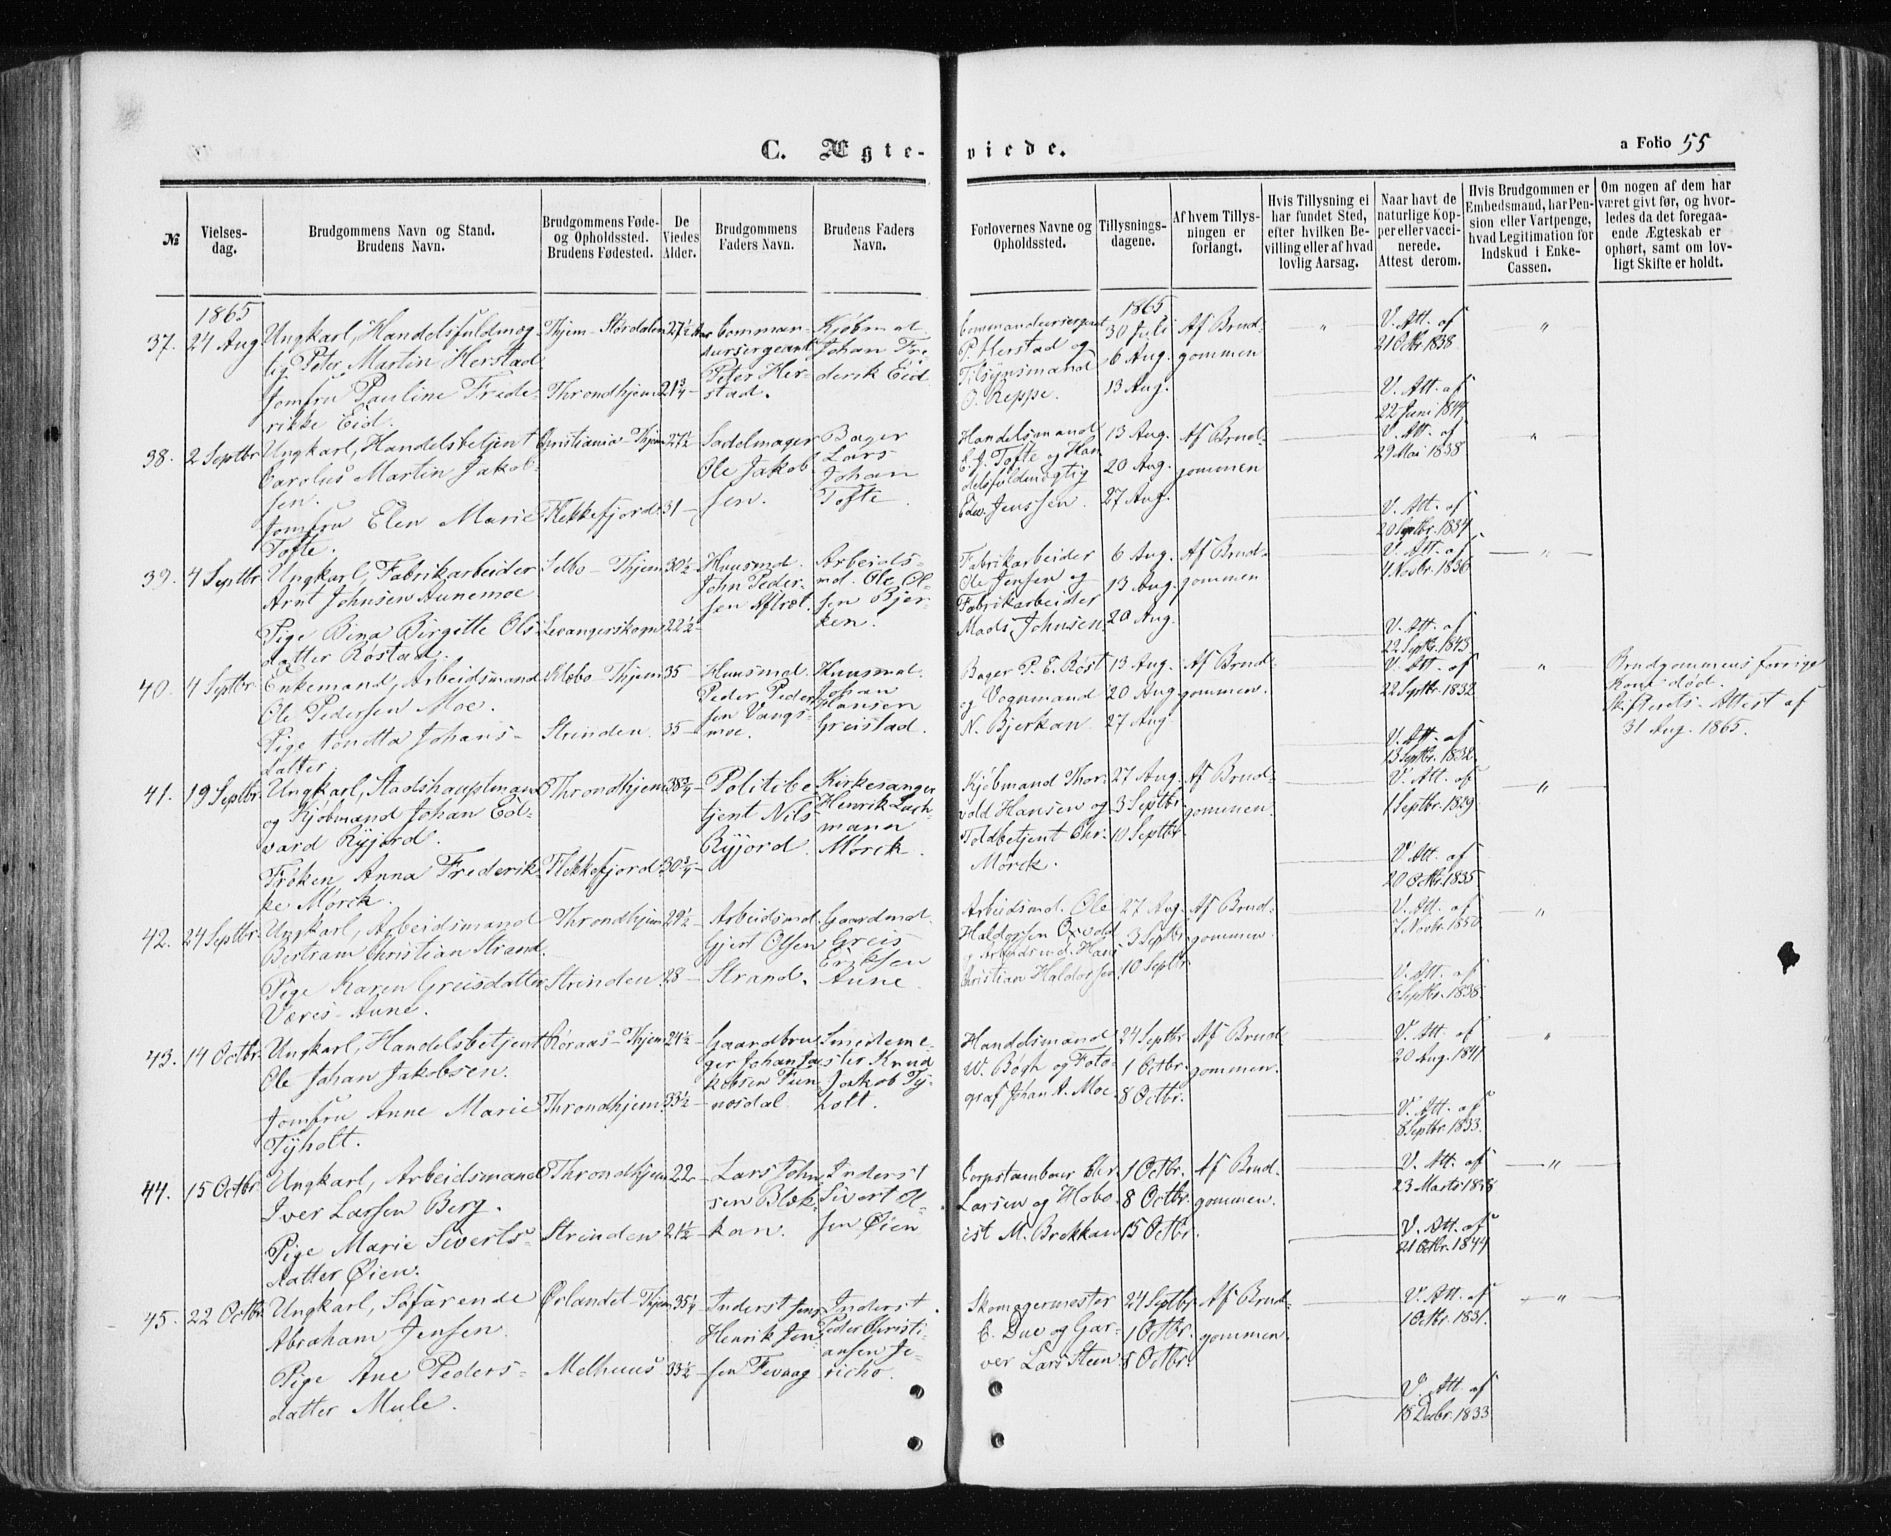 C. Ægte-viede.
a Folio 55
№
Vielses-dag.
Brudgommens Navn og Stand.
Brudens Navn.
Brudgommens Føde-
og Opholdssted.
Brudens Fødested.
De
Viedes
Alder.
Brudgommens
Faders Navn.
Brudens Faders
Navn.
Forlovernes Navne og
Opholdssted.
Tillysnings-
dagene.
Af hvem Tillys-
ningen er
forlangt.
Hvis Tillysning ei
har fundet Sted,
efter hvilken Be-
villing eller af hvad
lovlig Aarsag.
Naar havt de
naturlige Kop-
per eller vacci-
nerede.
Attest derom.
Hvis Brudgommen er
Embedsmand, har Pen-
sion eller Vartpenge,
hvad Legitimation for
Indskud i Enke-
Cassen.
Om nogen af dem har
været givt før, og hvor-
ledes da det foregaa-
ende Ægteskab er
ophørt, samt om lov-
ligt Skifte er holdt.
1865
37. 24 Aug
Ungkarl, Handelsfuldmæg-
tig Peter Martin Herstad
Jomfru Pauline Frede-
rikke Eid.
Thjem - Stördalen
Throndhjem
27½ Aar
21¾ -
Comman-
dursergeant
Peter Her-
stad.
Kjöbmd.
Johan Fre-
derik Eid
Commandeursergeant
P. Herstad og
Tilsynsmand
O. Reppe.
1865
30 Juli
6 Aug.
13 Aug.
Af Brud-
gommen
"
V. Att. af
21 Octbr 1838
V. Att. af
22 Juni 1844
"
38. 2 Septbr
Ungkarl, Handelsbetjent
Carolus Martin Jakob-
sen.
Jomfru Elen Marie
Tofte.
Christiania - Thjem
Flekkefjord
27½ -
31 -
Sadelmager
Ole Jakob-
sen.
Bager
Lars
Johan
Tofte.
Handelsmand
C. J. Tofte og Han-
delsfuldmægtig
Edv. Jenssen.
13 Aug.
20 Aug.
27 Aug.
Af Brud-
gommen
V. Att. af
29 Mai 1838
V. Att. af
20 Septbr. 1834
"
39. 4 Septbr.
Ungkarl, Fabrikarbeider
Arnt Johnsen Aunemoe
Pige Bina Birgitte Ols-
datter Röstad.
Selbo - Thjem
Levangerskogn
30½ -
22½ -
Huusmd.
John Peder-
sen Aftret.
Arbeids-
md. Ole Ol-
sen Bjer-
ken.
Fabrikarbeider
Ole Jensen og
Fabrikarbeider
Mads Johnsen.
6 Aug.
13 Aug.
20 Aug.
Af Brud-
gommen
V. Att. af
4 Novbr. 1836
V. Att. af
22 Septbr. 1843
"
40. 4 Septbr.
Enkemand, Arbeidsmand
Ole Pedersen Moe.
Pige Johans-
datter.
Klæbo - Thjem
Strinden.
35 -
35 -
Huusmd.
Peder Peder-
sen Vangs-
moe.
Huusmd.
Johan
Hansen
Greistad.
Bager P. E. Röst
og Vognmand
N. Bjerkan.
13 Aug.
20 Aug.
27 Aug.
Af Brud-
gommen.
V. Att. af
22 Septbr. 1832
V. Att. af
13 Septbr. 1832
"
Brudgommens forrige
Kone død.
Skifterets-Attest af
31 Aug. 1865.
41. 19 Septbr.
Ungkarl, Stadshauptmand
og Kjöbmand Johan Ed-
vard Ryjord.
Fröken Anna Frederik-
ke Mörck.
Throndhjem
Flekkefjord
38¾ -
30¾ -
Politibe-
tjent Nils
Ryjord.
Kirkesanger
Henrik Lach-
mann
Mörck.
Kjöbmand Thor-
vold Hansen og
Toldbetjent Chr.
Mörck.
27 Aug.
3 Septbr
10 Septbr.
Af Brud-
gommen.
V. Att. af
1 Septbr. 1829
V. Att. af
20 Octbr. 1835
"
42. 24 Septbr.
Ungkarl, Arbeidsmand
Bertram Christian Strand.
Pige Karen Greisdatter
Væres-Aune.
Throndhjem
Strinden
29½ -
28 -
Arbeidsmd.
Gjert Olsen
Strand.
Gaardmd.
Greis
Eriksen
Aune.
Arbeidsmd. Ole
Haldorsen Oxvold
og Arbeidsmd. Hans
Christian Haldorsen.
27 Aug.
3 Septbr.
10 Septbr.
Af Brud-
gommen.
V. Att. af
7 Novbr. 1850
V. Att. af
6 Septbr. 1838
"
43. 14 Octbr.
Ungkarl, Handelsbetjent
Ole Johan Jakobsen.
Jomfru Anne Marie
Tyholt.
Röraas - Thjem
Throndhjem
24½ -
33½ -
Gaardbru-
ger Johan Ja-
kobsen Fun-
nosdal.
Smedeme-
ster Knud
Jakob Ty-
holt.
Handelsmand
W. Bögh og Foto-
graf Johan A. Moe.
24 Septbr
1 Octbr.
8 Octbr.
Af Brud-
gommen.
V. Att. af
20 Aug. 1841
V. Att. af
8 Septbr. 1833.
"
44. 15 Octbr
Ungkarl, Arbeidsmand
Iver Larsen Berg.
Pige Marie Siverts-
datter Öien.
Throndhjem
Strinden
22 -
21½ -
Lars John-
sen Blæk-
kan.
Inderst
Sivert Ol-
sen Öien
Corpstambour Chr.
Larsen og Hobo-
ist M. Brekkan
1 Octbr.
8 Octbr.
15 Octbr.
Af Brud-
gommen.
V. Att. af
23 Marts 1858
V. Att. af
21 Octbr. 1844
"
45. 22 Octbr
Ungkarl, Söfarende
Abraham Jensen.
Pige Ane Peders-
datter Mule.
Örlandet - Thjem
Melhuus
35¼ -
33½ -
Inderst Jens
Henrik Jen-
sen Fevaag
Inderst
Peder Christi-
ansen Je-
richo.
Skomagermester
C. Due og Gar-
ver Lars Steen
24 Septbr.
1 Octbr.
8 Octbr.
Af Brud-
gommen.
V. Att. af
1 Octbr. 1831.
V. Att. af
15 Decbr. 1833
"